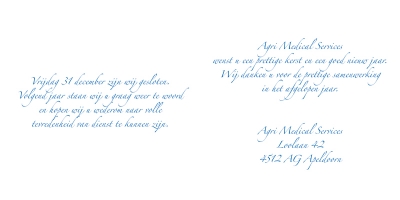 Vrijdag 31 december zijn wij gesloten.
Volgend jaar staan wij u graag weer te woord
en hopen wij u wederom naar volle
terredenheid van dienst te kunnen zijn.
Agri Medical Services
wenst u een prettige kerst en een goed nieuw jaar.
Wij danken u voor de prettige samenwerking
in het afgelopen jaar.
Agri Medical Services
Loolaan 42
4512 AG Apeldoorn